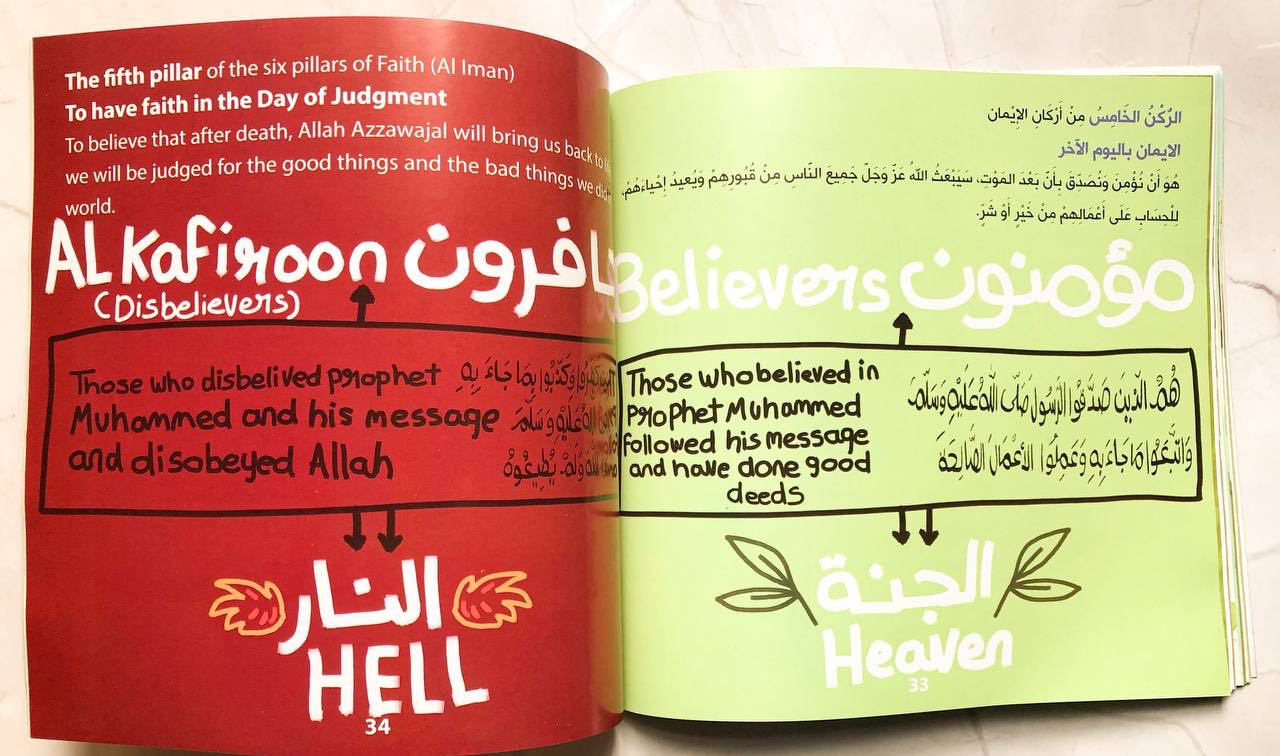 The fifth pillar of the six pillars of Faith (Al Iman)
To have faith in the Day of Judgment
To believe that after death, Allah Azzawajal will bring us back to
we will be judged for the good things and the bad things we did
world.
AL Kafiroon
(Disbelievers)
Those who disbelived prophet
Muhammed and his message
and disobeyed Allah
وَكَذَّبُوا بِمَا جَاءَ بِهِ
عَلَيْهِ وَسَلَّمَ
وَلَمْ يُطِيعُوهُ
النار
HELL
34
الرُّكْنُ الخَامِسُ مِنْ أَرْكَانِ الإِيْمَان
الايمان باليوم الآخر
هُوَ أَنْ نُؤْمِنَ وَنُصَدِّقَ بِأَنَّ بَعْدَ المَوْتِ، سَيَبْعَثُ اللهُ عَزَّ وَجَلَّ جَمِيعَ النَّاسِ مِنْ قُبُورِهِمْ وَيُعيدُ إِحْياءَهُمْ،
لِلْحِسَابِ عَلَى أَعْمَالِهِمْ مِنْ خَيْرٍ أَوْ شَرّ.
Believers مؤمنون
Those who believed in
prophet Muhammed
followed his message
and have done good
deeds
هُمُ الَّذِينَ صَدَّقُوا الرَّسُولَ صَلَّى اللهُ عَلَيْهِ وَسَلَّمَ
وَاتَّبَعُوا مَا جَاءَ بِهِ وَعَمِلُوا الأَعْمَالَ الصَّالِحَةَ
الجنة
Heaven
33